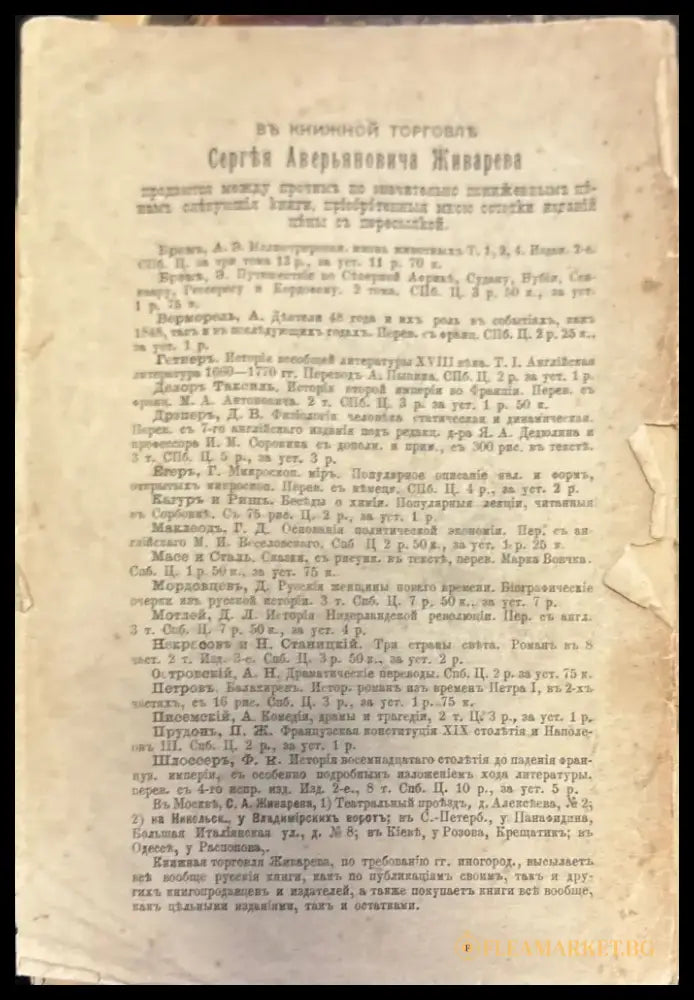 ВЪ КНИЖНОЙ ТОРГОВЛѢ
Сергѣя Аверьяновича Живарева
продаются между прочимъ по значительно пониженнымъ цѣ-
намъ слѣдующія книги, пріобрѣтенныя мною остатки изданій
цѣны съ пересылкой.
Бремъ, А. Э. Иллюстрирован. жизнь животныхъ Т. 1, 2, 4. Издан. 2-е.
СПб. Ц. за три тома 13 р., за уст. 11 р. 70 к.
Бремъ, Э. Путешествіе по Сѣверной Африкѣ, Судану, Нубіи, Сен-
наару, и Кордовану. 2 тома. СПб. Ц. 3 р. 50 к., за уст.
1 р. 75 к.
Верморель, А. Дѣятели 48 года и ихъ роль въ событіяхъ, какъ
1848, такъ и въ послѣдующихъ годахъ. Перев. съ франц. СПб. Ц. 2 р. 25 к.,
за уст. 1 р.
Гетнеръ. Исторія всеобщей литературы XVIII вѣка. Т. I. Англійская
литература 1660—1770 гг. Переводъ А. Пыпина. СПб. Ц. 2 р. за уст. 1 р.
Делоръ Таксиль. Исторія второй имперіи во Франціи. Перев. съ
франц. М. А. Антоновича. 2 т. СПб. Ц. 3 р. за уст. 1 р. 50 к.
Дрэперъ, Д. В. Физіологія человѣка статическая и динамическая.
Перев. съ 7-го англійскаго изданія подъ редакц. д-ра Я. А. Дедюлина и
профессора И. М. Сорокина съ дополн. и прим., съ 300 рис. въ текстѣ.
3 т. СПб. Ц. 5 р., за уст. 3 р.
Егеръ, Г. Микроскоп. міръ. Популярное описаніе явл. и формъ,
открытыхъ микроскоп. Перев. съ нѣмецк. СПб. Ц. 4 р., за уст. 2 р.
Кагуръ и Ришъ. Бесѣды о химіи. Популярныя лекціи, читанныя
въ Сорбоннѣ. Съ 75 рис. Ц. 2 р., за уст. 1 р.
Маклеодъ, Г. Д. Основанія политической экономіи. Пер. съ ан-
глійскаго М. И. Веселовскаго. Спб Ц 2 р. 50 к., за уст. 1 р. 25 к.
Масе и Сталь. Сказки. съ рисунк. въ текстѣ, перев. Марка Вовчка.
Спб. Ц. 1 р. 50 к., за уст. 75 к.
Мордовцевъ, Д. Русскія женщины новаго времени. Біографическіе
очерки изъ русской исторіи. 3 т. Спб. Ц. 7 р. 50 к., за уст. 7 р.
Мотлей, Д. Л. Исторія Нидерландской революціи. Пер. съ англ.
3 т. Спб. Ц. 7 р. 50 к., за уст. 4 р.
Некрасовъ и Н. Станицкій. Три страны свѣта. Романъ въ 8
част. 2 т. Изд. 3-е. Спб. Ц. 3 р. 50 к., за уст. 2 р.
Островскій, А. Н. Драматическіе переводы. Спб. Ц. 2 р. за уст. 75 к.
Петровъ. Балакиревъ. Истор. романъ изъ временъ Петра I, въ 2-хъ
частяхъ, съ 16 рис. Спб. Ц. 3 р., за уст. 1 р. 75 к.
Писемскій, А. Комедіи, драмы и трагедіи, 2 т. Ц. 3 р., за уст. 1 р.
Прудонъ, П. Ж. Французская конституція XIX столѣтія и Наполе-
онъ III. Спб. Ц. 2 р., за уст. 1 р.
Шлоссеръ, Ф. К. Исторія восемнадцатаго столѣтія до паденія фран-
цуз. имперіи, съ особенно подробнымъ изложеніемъ хода литературы.
перев. съ 4-го испр. изд. Изд. 2-е., 8 т. Спб. Ц. 10 р., за уст. 5 р.
Въ Москвѣ, С. А. Живарева, 1) Театральный проѣздъ, д. Алексѣева, № 2;
2) на Никольск., у Владимірскихъ воротъ; въ С.-Петерб., у Панафидина,
Большая Италіянская ул., д. № 8; въ Кіевѣ, у Розова, Крещатикъ; въ
Одессѣ, у Распопова,.
Книжная торговля Живарева, по требованію гг. иногород., высылаетъ
всѣ вообще русскія книги, какъ по публикаціямъ своимъ, такъ и дру-
гихъ книгопродавцевъ и издателей, а также покупаетъ книги всѣ вообще,
какъ цѣльными изданіями, такъ и остатками.
FLEAMARKET.BG